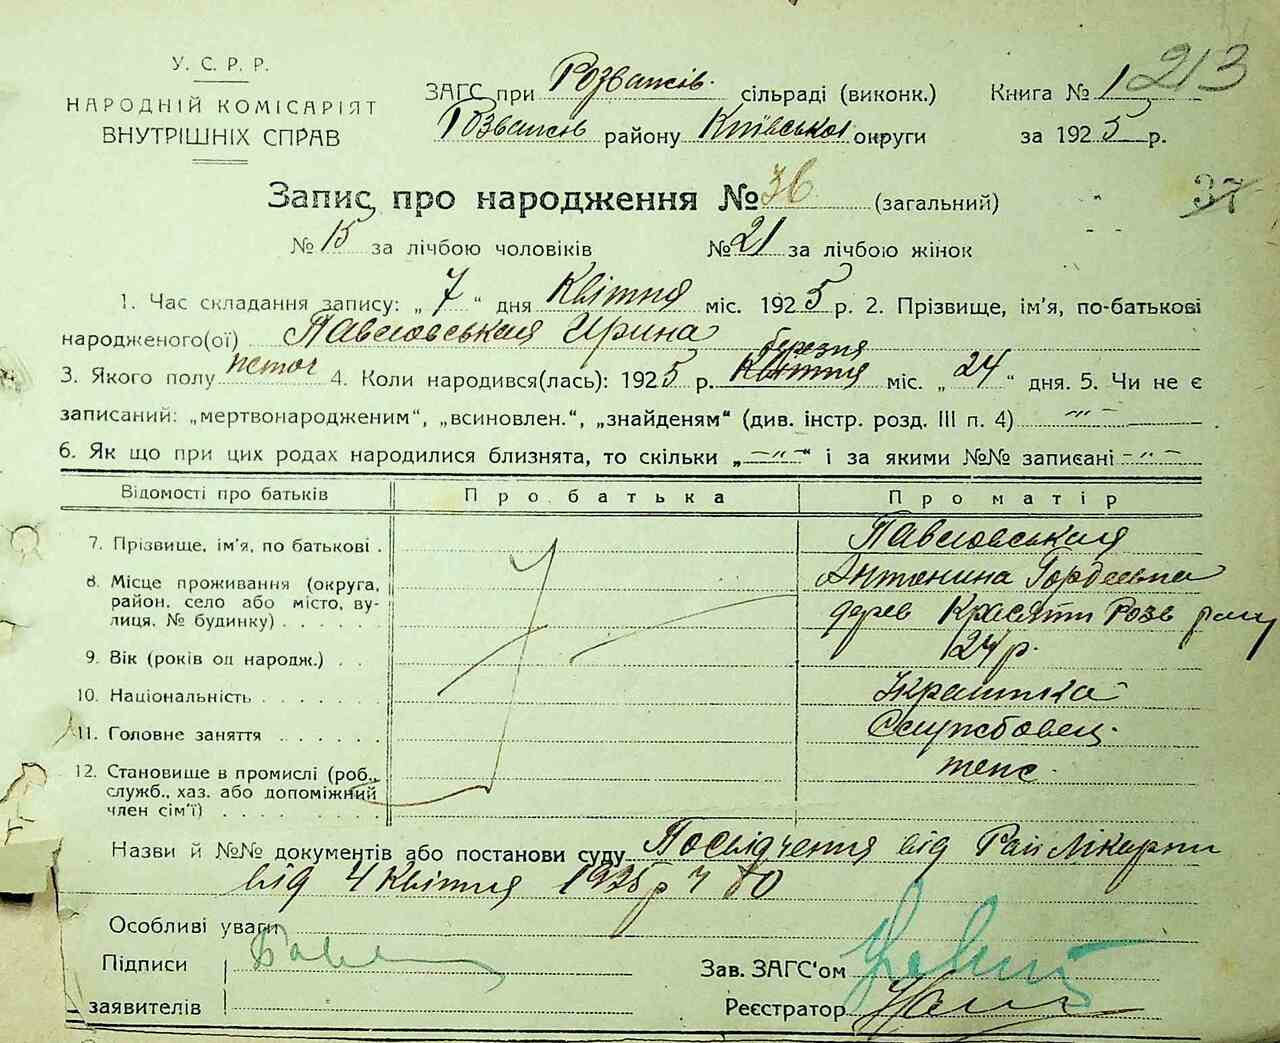 213
У. С. Р. Р.
НАРОДНІЙ КОМІСАРІЯТ
ВНУТРІШНІХ СПРАВ
ЗАГС при Розважів. сільраді (виконк.)
Розважів району Київської округи
Книга № 1
за 1925 р.
Запис про народження № 36 (загальний)
37
№ 15 за лічбою чоловіків № 21 за лічбою жінок
1. Час складання запису: „ 7 “ дня Квітня міс. 1925 р. 2. Прізвище, ім'я, по-батькові
народженого(ої) Павловськая Ирина
березня
3. Якого полу жіноч 4. Коли народився(лась): 1925 р. Квітня міс. „ 24 “ дня. 5. Чи не є
записаний: „мертвонародженим“, „всиновлен.“, „знайденям“ (див. інстр. розд. III п. 4) —〃—
6. Як що при цих родах народилися близнята, то скільки „ —〃— “ і за якими №№ записані —〃—
Відомості про батьків Про батька Про матір
7. Прізвище, ім'я, по батькові . Павловськая
Антонина Гордеевна
8. Місце проживання (округа,
район, село або місто, ву-
лиця, № будинку) . . . . дерев Красяти Розв
9. Вік (років од народж.) . . 24 р.
10. Національність . . . . . . . Українка
11. Головне заняття . . . . . . Службовец.
12. Становище в промислі (роб.,
служб., хаз. або допоміжний
член сім'ї) . . . . . . . . .
Назви й №№ документів або постанови суду Посвідчення від Рай Лікарні
від 4 Квітня 1925 р ч 80
Особливі уваги
Підписи
заявителів
Зав. ЗАГС'ом
Реєстратор